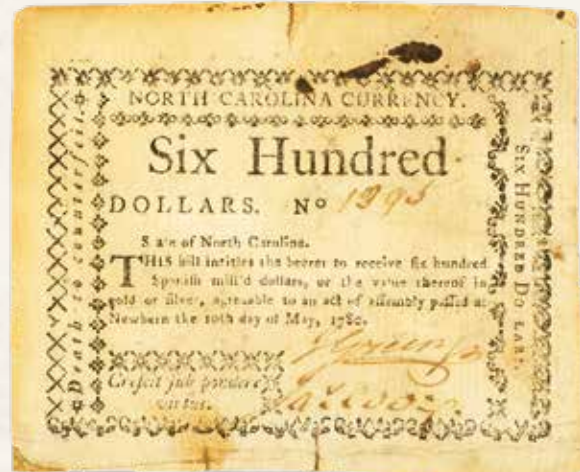 NORTH CAROLINA CURRENCY.
Six Hundred
DOLLARS. No 1995
State of North Carolina.
THIS bill intitles the bearer to receive six hundred
Spanish mill'd dollars, or the value thereof in
gold or silver, agreeable to an act of assembly passed at
Newbern the 10th day of May, 1780.
Crescit sub pondere
virtus.
Death to counterfeit.
SIX HUNDRED DOLLARS.